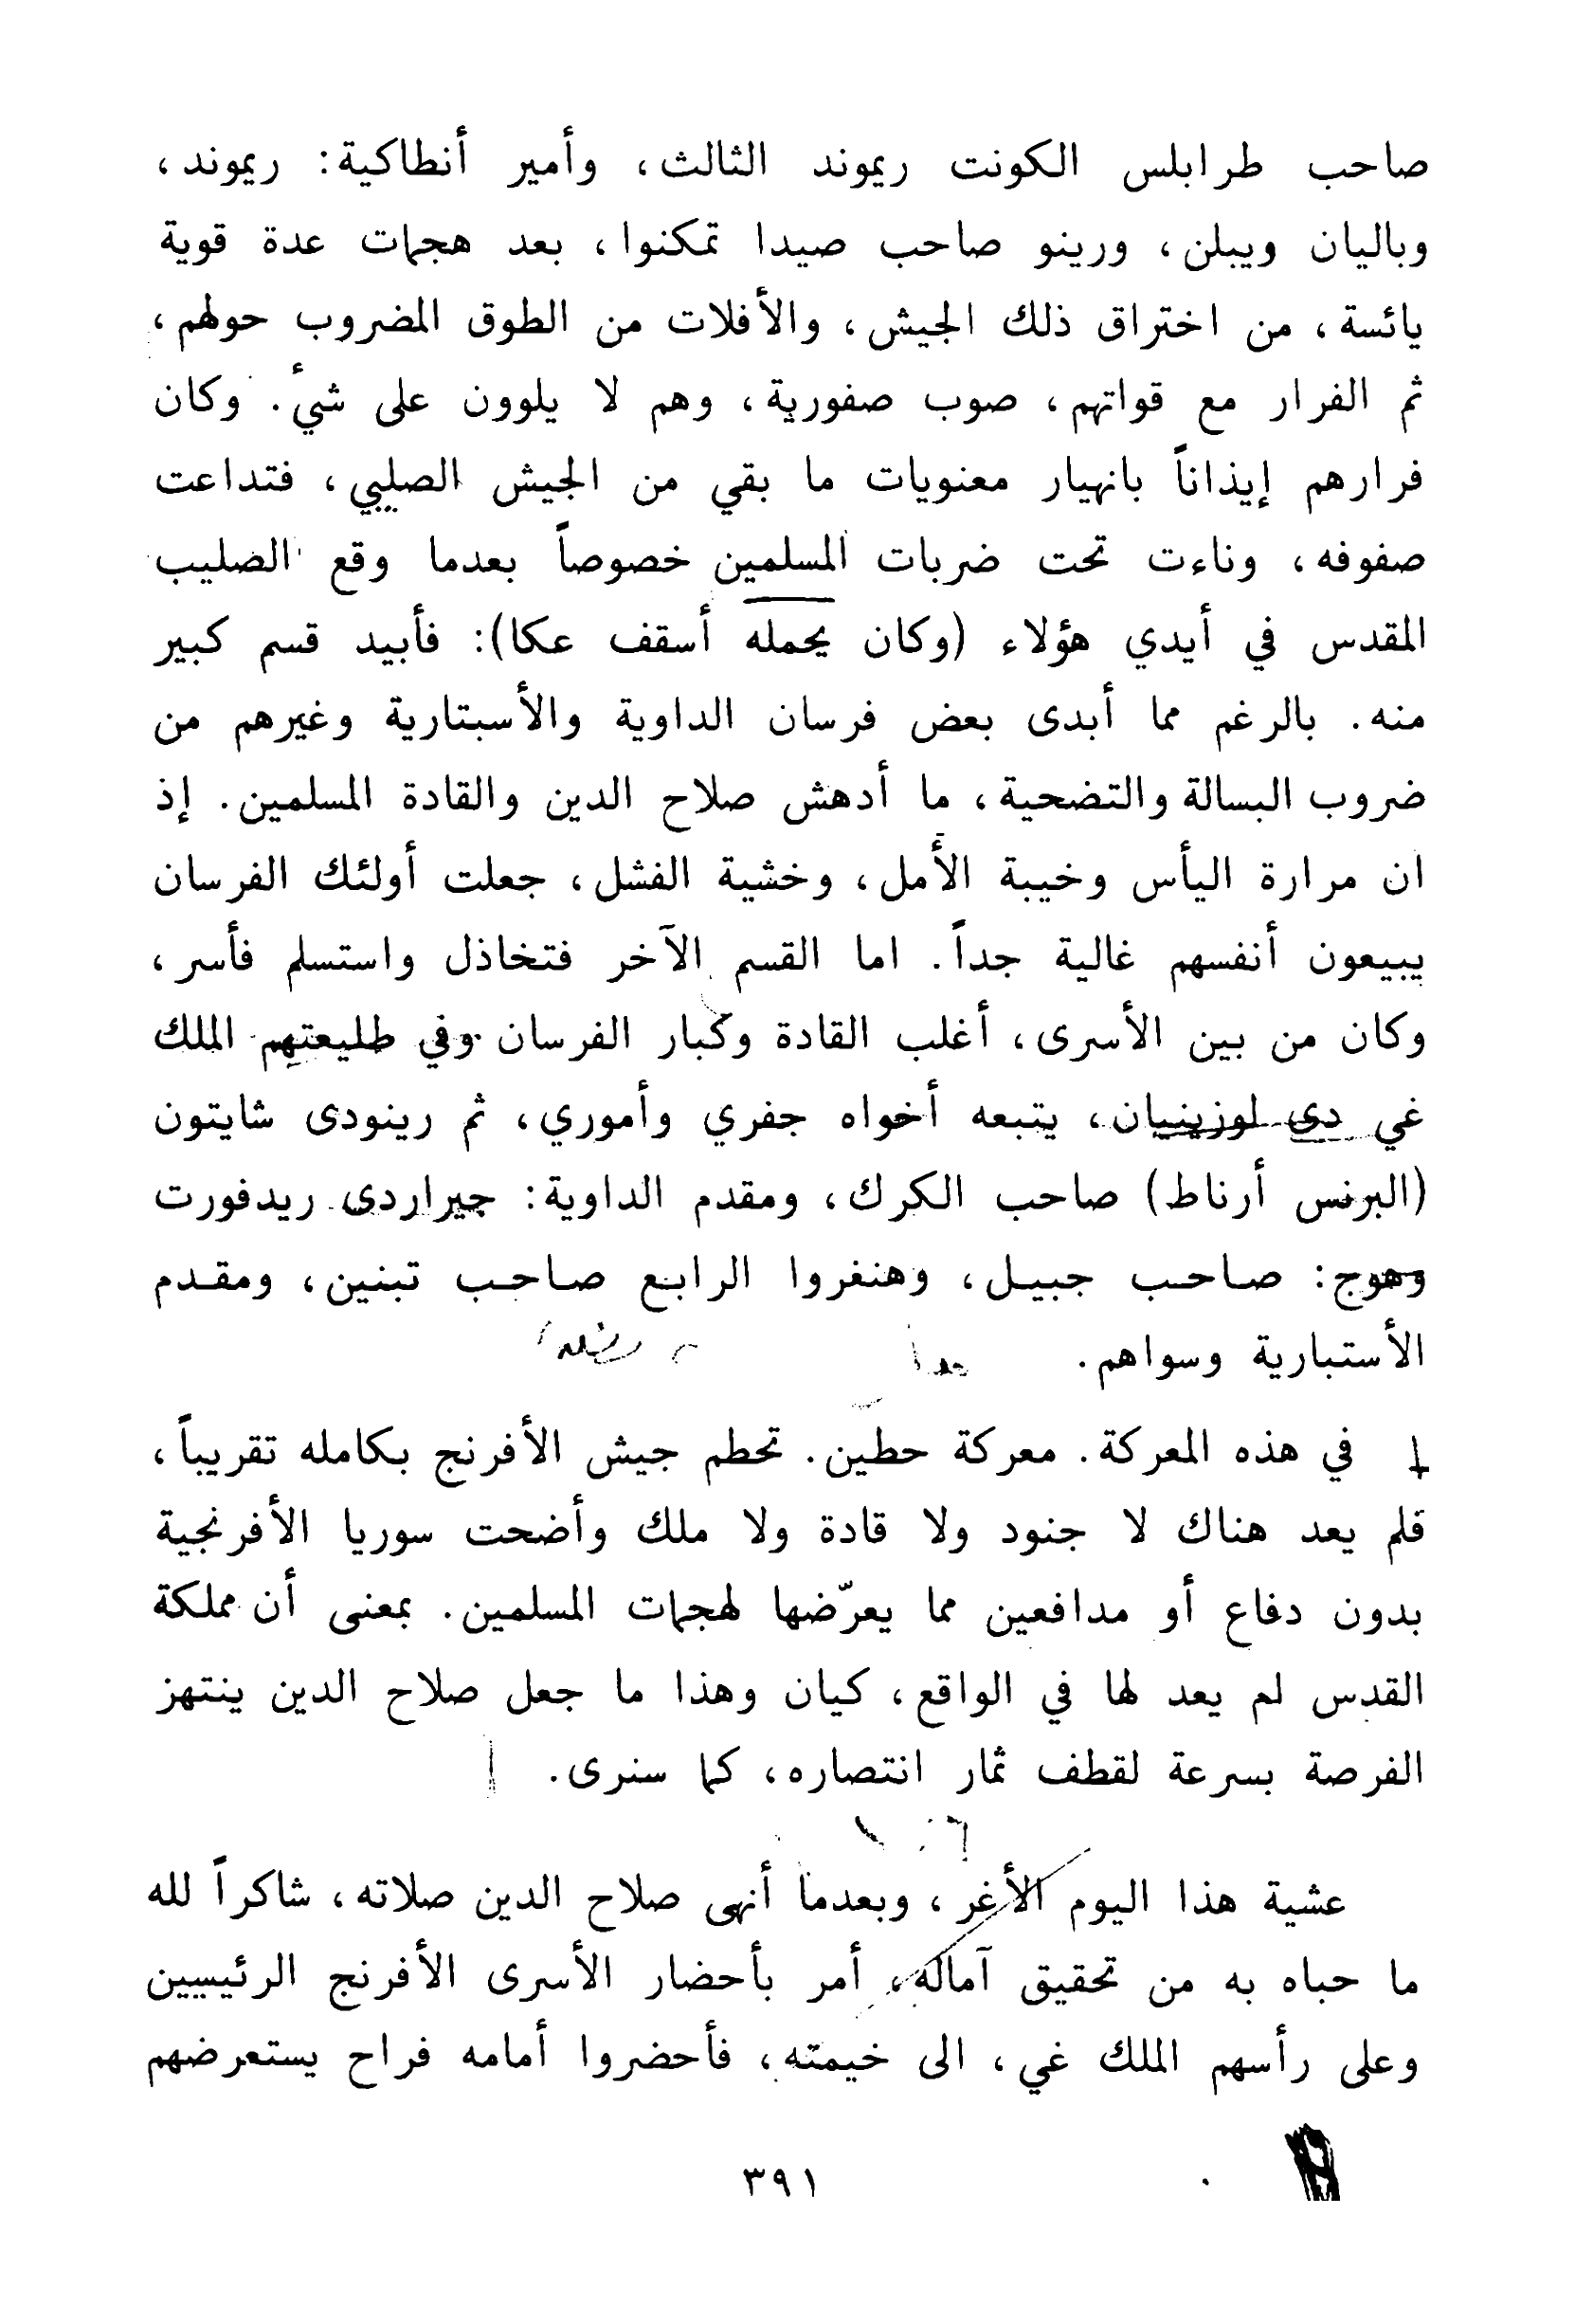 صاحب طرابلس الكونت ريموند الثالث، وأمير أنطاكية: ريموند،
وباليان ويبلن، ورينو صاحب صيدا تمكنوا، بعد هجمات عدة قوية
يائسة، من اختراق ذلك الجيش، والأفلات من الطوق المضروب حولهم،
ثم الفرار مع قواتهم، صوب صفورية، وهم لا يلوون على شيءٔ. وكان
فرارهم إيذاناً بانهيار معنويات ما بقي من الجيش الصليبي، فتداعت
صفوفه، وناءت تحت ضربات المسلمين خصوصاً بعدما وقع الصليب
المقدس في أيدي هؤلاء (وكان يحمله أسقف عكا): فأبيد قسم كبير
منه. بالرغم مما أبدى بعض فرسان الداوية والأسبتارية وغيرهم من
ضروب البسالة والتضحية، ما أدهش صلاح الدين والقادة المسلمين. إذ
ان مرارة اليأس وخيبة الأمل، وخشية الفشل، جعلت أولئك الفرسان
يبيعون أنفسهم غالية جداً. اما القسم الآخر فتخاذل واستسلم فأسر،
وكان من بين الأسرى، أغلب القادة وكبار الفرسان وفي طليعتهم الملك
غي دى لوزينيان، يتبعه أخواه جفري وأموري، ثم رينودى شايتون
(البرنس أرناط) صاحب الكرك، ومقدم الداوية: جيراردى ريدفورت
وهوج: صاحب جبيل، وهنغروا الرابع صاحب تبنين، ومقدم
الأستبارية وسواهم.
في هذه المعركة. معركة حطين. تحطم جيش الأفرنج بكامله تقريباً،
فلم يعد هناك لا جنود ولا قادة ولا ملك وأضحت سوريا الأفرنجية
بدون دفاع أو مدافعين مما يعرّضها لهجمات المسلمين. بمعنى أن مملكة
القدس لم يعد لها في الواقع، كيان وهذا ما جعل صلاح الدين ينتهز
الفرصة بسرعة لقطف ثمار انتصاره، كما سنرى.
عشية هذا اليوم الأغر، وبعدما أنهى صلاح الدين صلاته، شاكراً لله
ما حباه به من تحقيق آماله، أمر بأحضار الأسرى الأفرنج الرئيسيين
وعلى رأسهم الملك غي، الى خيمته، فأحضروا أمامه فراح يستعرضهم
٣٩١